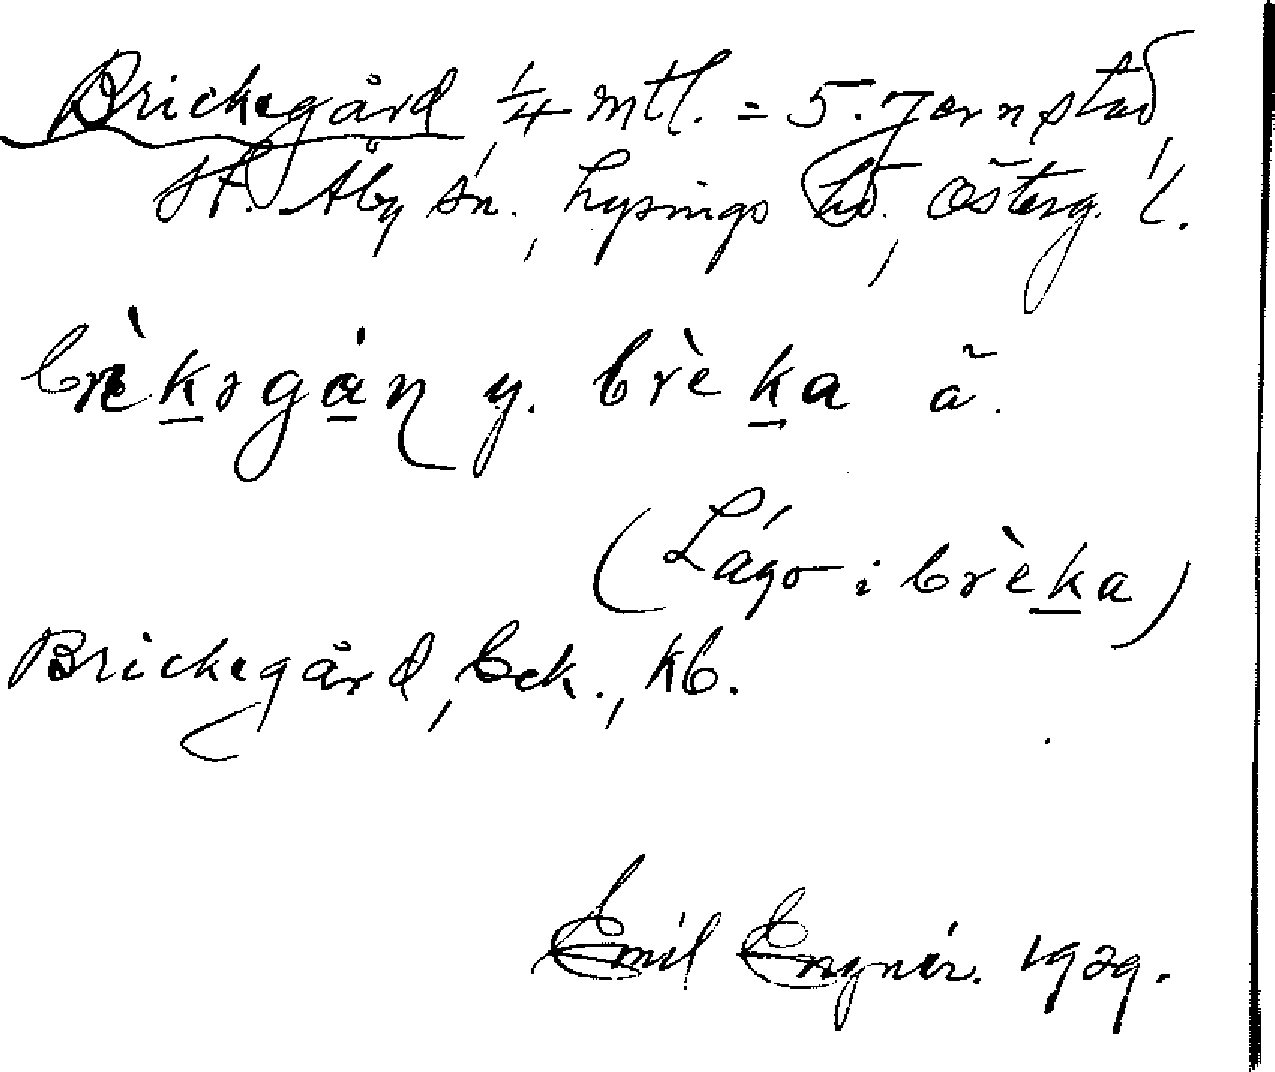 Brickegård 1/4 mtl. = 5. Jernstad,
St. Åby sn., Lysings hd., Österg. l.
brèkəgán y. brèka ă.
(Lágo i brèka)
Brickegård, bek., kb.
Emil Engnér. 1929.